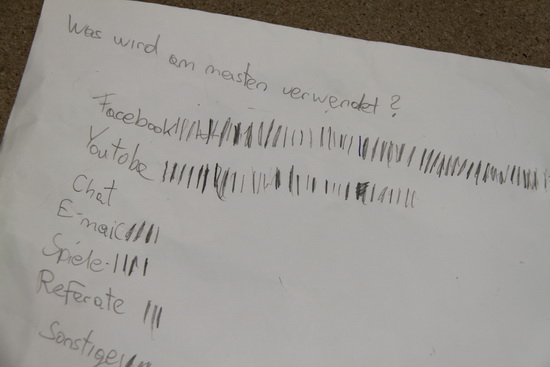 Was wird am meisten verwendet?
Facebook
Youtobe
Chat
E-mail
Spiele
Referate
Sonstige